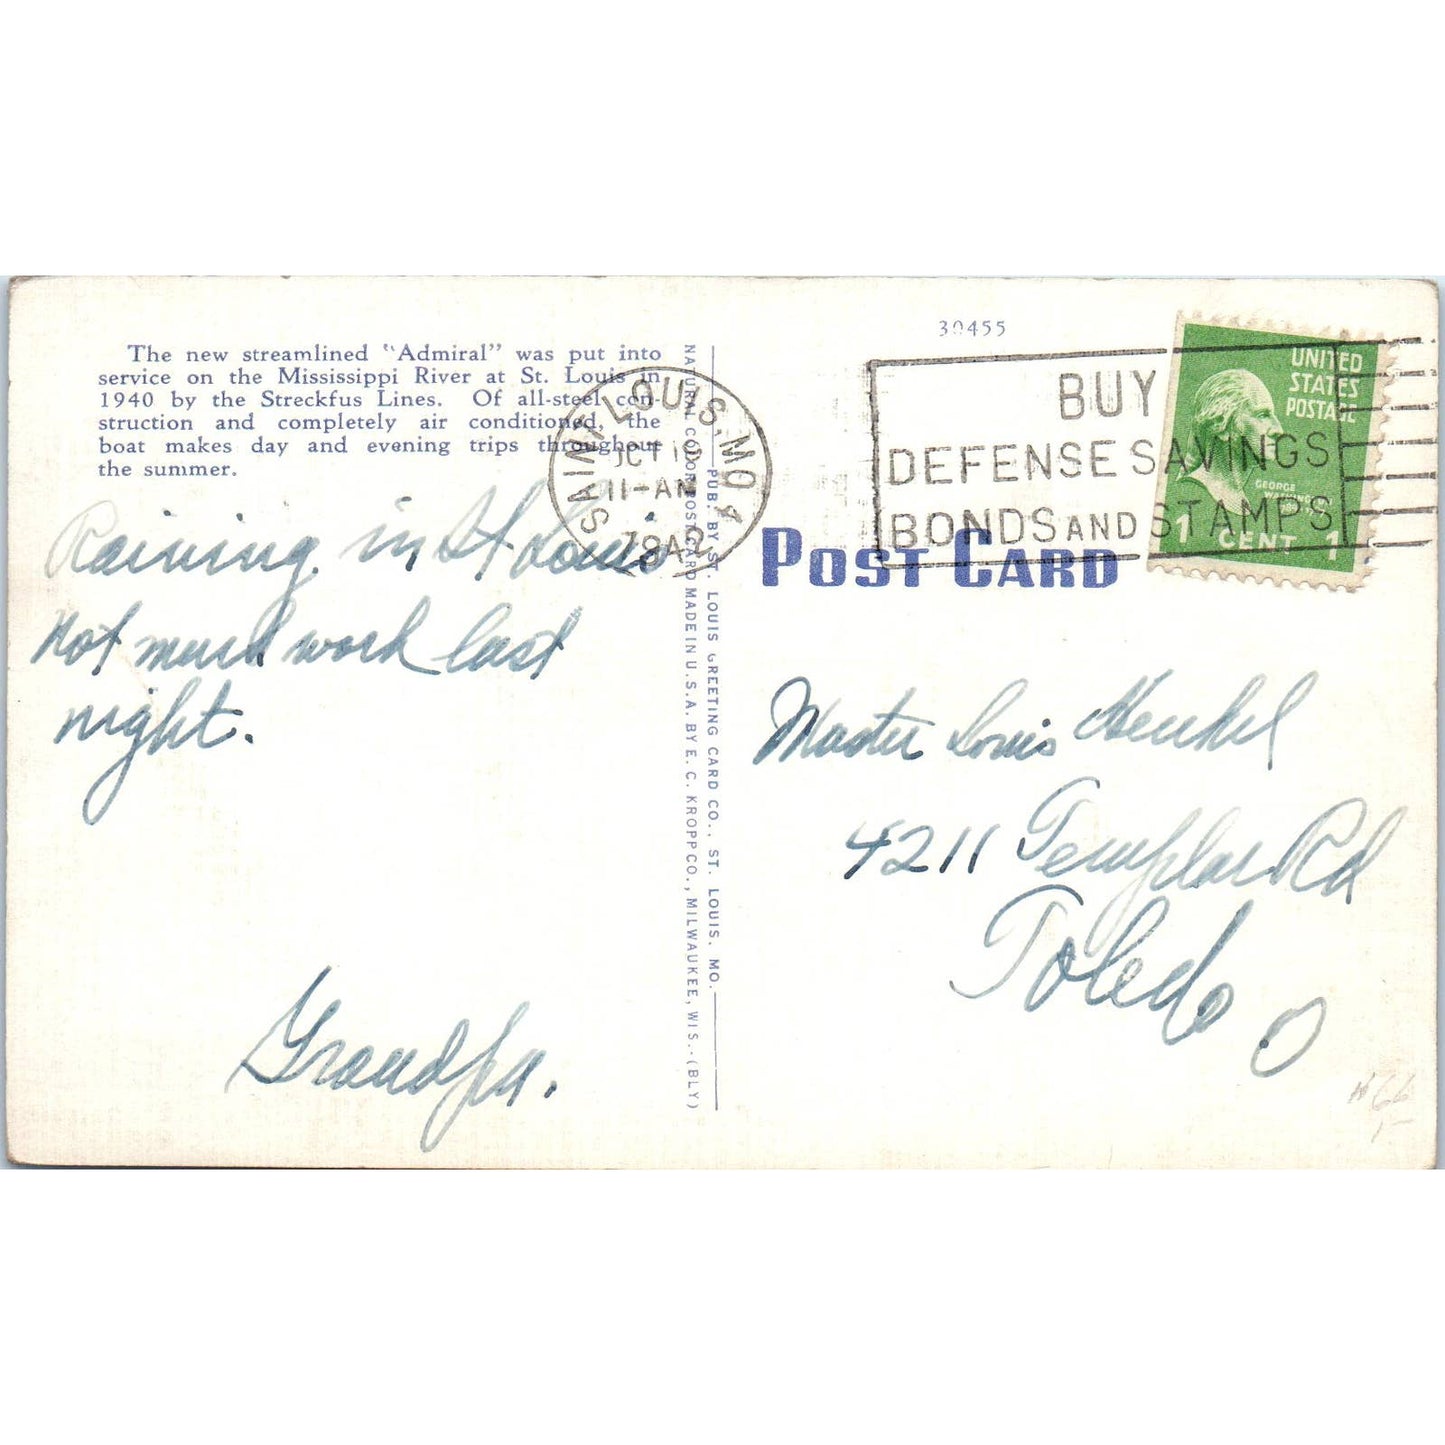 The new streamlined "Admiral" was put into
service on the Mississippi River at St. Louis in
1940 by the Streckfus Lines. Of all-steel con-
struction and completely air conditioned, the
boat makes day and evening trips throughout
the summer.
Raining in St Louis
Not much work last
night.
Grandpa.
NATURAL COLOR POST CARD MADE IN U.S.A. BY E. C. KROPP CO., MILWAUKEE, WIS. (BLY)
PUB. BY ST. LOUIS GREETING CARD CO., ST. LOUIS, MO.
SAINT LOUIS, MO.
11-AM
30455
BUY
DEFENSE SAVINGS
BONDS AND STAMPS
UNITED
STATES
POSTAGE
GEORGE
WASHINGTON
1 CENT 1
POST CARD
Master Louis Henkel
4211 Templar Rd
Toledo
O